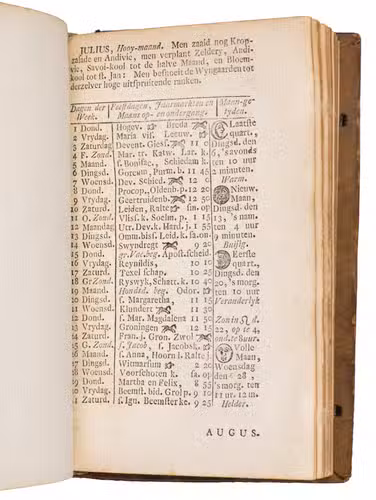 JULIUS, Hooy-maand. Men zaaid nog Krop-
zalade en Andivie, men verplant Zeldery, Andi-
vie, Savoi-kool tot de halve Maand, en Bloem-
kool tot st. Jan: Men besnoeit de Wyngaarden tot
derzelver hoge uitspruitende ranken.
Dagen der Week. Feestdagen, Jaarmarkten en Maans op- en ondergang. Maan-getyden.
1 Dond. Hogev. Breda Laatste
2 Vrydag Maria vis. Leeuw. quart.,
3 Zaturdag Devent. Giess. 11 0 Dingsd. den
4 F. Zond. Mar. tr. Katw. Lar. k. 6, 's avonds
5 Maand. s. Bonifac., Schiedam k. ten 10 uur
6 Dingsd. Gorcum, Purm. b. 11 45 2 minuten.
7 Woensd. Dev. Schied. Warm.
8 Dond. Procop., Oldenb. p. 12 20 Nieuw.
9 Vrydag Geertruidenb. 12 50 Maan,
10 Zaturd. Leiden, Ralte sm. on Dingsd. den
11 O. Zond. Vliss. k. Soelm. p. 1 15 13, 's nam.
12 Maandag Utr. Dev. k. Hard. j. 1 55 ten 4 uur
13 Dingsd. Omm. bisf. Leid. k. sa. on 9 minuten.
14 Woensd. Swyndregt 9 20 Buijig.
15 Dond. gr. Vac. beg. Apost. scheid. Eerste
16 Vrydag Reynildis, 10 10 quart.,
17 Zaturd. Texel schap. 10 25 Dingsd. den
18 G. Zond. Ryswyk, Scharr. k. 10 40 20, 's morg.
19 Maand. Hondsd. beg. Odor. ten 10 uur
20 Dingsd. s. Margaretha, 11 15 Veranderlyk
21 Woensd. Klundert 11 30
22 Dond. s. Mar. Magdalena 11 50 Zon in d.
23 Vrydag Groningen 12 15 22, op te 4,
24 Zaturd. Fran. j. Gron. Zwol ond. te 8 uur.
25 G. Zond. s. Jacob, s. Jacobsk. Volle
26 Maand. s. Anna, Hoorn l. Ralte j. Maan,
27 Dingsd. Witmarsum 2 20 Woensdag
28 Woensd. Voorschoten k. sa. op den 28,
29 Dond. Martha en Felix, 8 55 's morg. ten
30 Vrydag Beemst. bid. Grol p. 9 10 11 ur. 12 m.
31 Zaturd. s. Ign. Beemster ke. 9 25 Helder.
AUGUS.